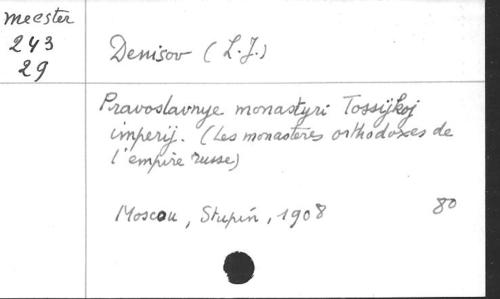 meester
243
29
Denisov (L.J.)
Pravoslavnye monastyri Tossijkoj
imperij. (Les monasteries orthodoxes de
l'empire russe)
Moscou, Stupin, 1908 80